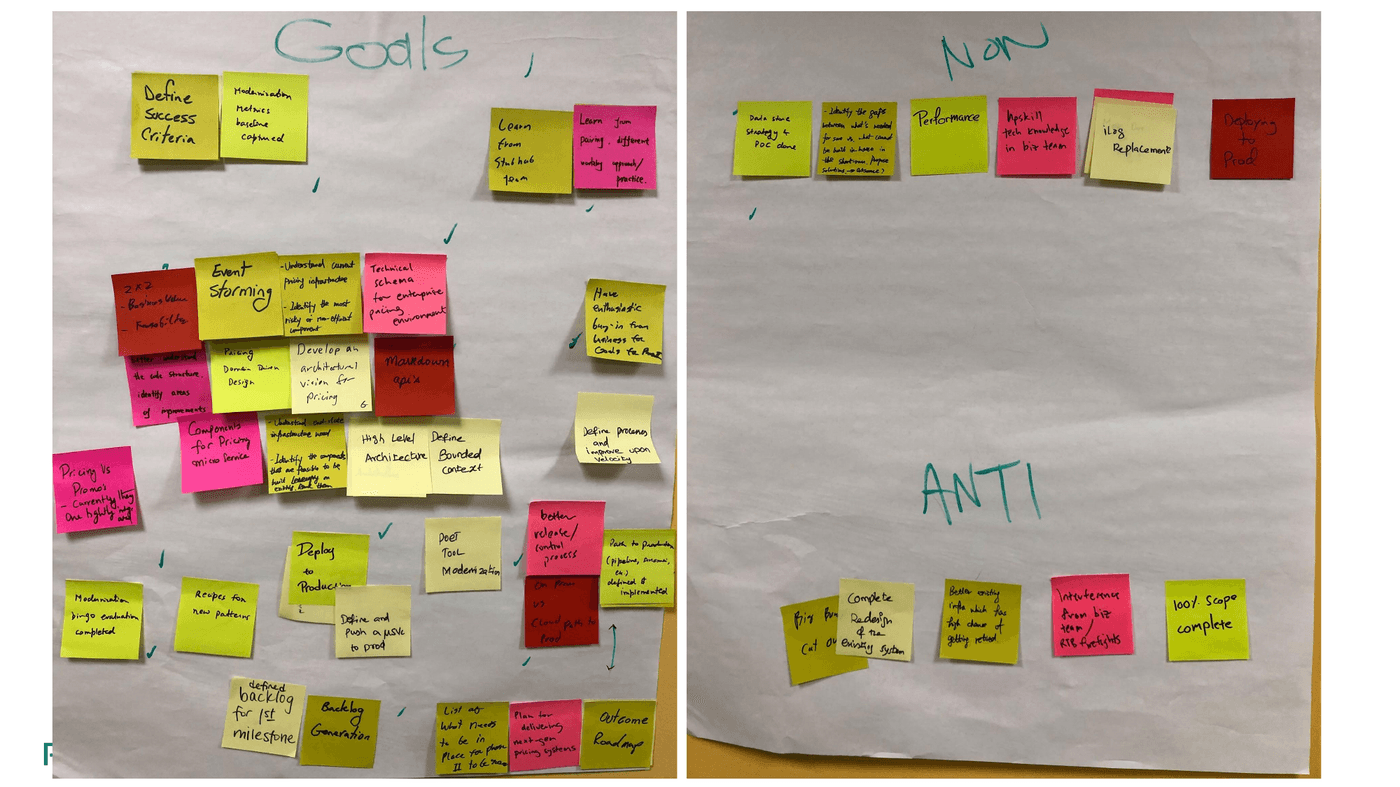 Goals
Define
Success
Criteria
Modernization
Metrics
baseline
captured
Learn
from
Stubhub
team
Learn from
pairing, different
working approach/
practice.
2x2
- Business Value
- Feasibility
Event
Storming
- Understand current
pricing infrastructure
- Identify the most
risky or non-efficient
component
Technical
schema
for enterprise
pricing
environment
Have
enthusiastic
buy-in from
business for
Goals for
better understand
the code structure.
identify areas
of improvements
Pricing
Domain Driven
Design
Develop an
architectural
vision for
pricing
G
Markdown
api's
Components
for Pricing
micro Service
- Understand
infrastructure need
- Identify the components
that are feasible to be
build
High Level
Architecture
Define
Bounded
Context
Define processes
and
improve upon
velocity
Pricing Vs
Promo's
- Currently they
are tightly
Deploy
to
Define and
Push a μSVC
to prod
POET
TOOL
Modernization
better
release/
control
process
Path to production
(pipeline,
etc.)
defined &
implemented
On Prem
vs
Cloud path to
Prod
Modernization
bingo evaluation
completed
Recipes for
new patterns
defined
backlog
for 1st
milestone
Backlog
Generation
List of
What needs
to be in
Place for phase
II to be
Plan for
delivering
next-gen
pricing systems
Outcome
Roadmap
NON
Data store
strategy &
POC done
- Identify the gaps
between what's needed
for
be build in-house in
the short run, propose
solutions
Performance
Upskill
tech knowledge
in biz team
iLog
Replacement
Deploying
to
Prod
ANTI
Big
Cut
Complete
Redesign
of the
existing system
Better existing
infra which has
high chance of
getting retired.
Interference
from biz
team/
RTB firefights
100% Scope
complete